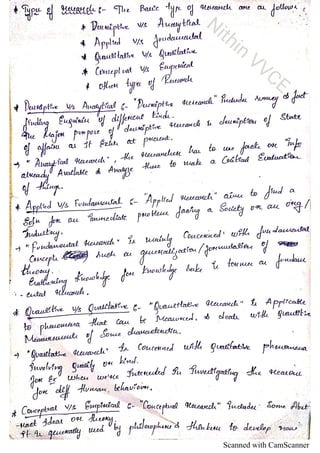 * Types of Research :- The Basic type of research are as follows:
* Descriptive v/s Analytical
* Applied v/s fundamental
* Quantitative v/s Qualitative
* Conceptual v/s Emperical
* Other types of Research
Nithin VVCE
* Descriptive v/s Analytical :- "Descriptive research" Include survey & fact
finding Enquiries of different kinds.
The Major purpose of descriptive research is description of State
of affairs as It Exist at present.
→ "Analytical Research", the researchers has to use facts or Info
already Available & Analyze these to make a Critical Evaluation
of things.
* Applied v/s Fundamental :- "Applied research" aims to find a
Soln for an Immediate problem facing a Society or an org/
Industry.
→ "Fundamental research" Is mainly Concerned with fundamental
Concepts such as generalization/formulation of
theory.
knowledge for knowledge sake is termed as fundame
- ental research.
* Quantitive v/s Qualitative :- "Quantitative research" Is Applicable
to phenomena that can be Measured. & deals with Quantitive
Measurements of Some characteristics.
→ "Qualitative Research" Is Concerned with Qualitative phenomena
Involving Quality or kind.
for Ex: when we're Interested In Investigating the reasons
for diff Human behaviour.
* Conceptual v/s Empirical :- "Conceptual Research" Includes Some Abst
-ract Ideas or theory.
It is generally used by philosophers & thinkers to develop new
Scanned with CamScanner